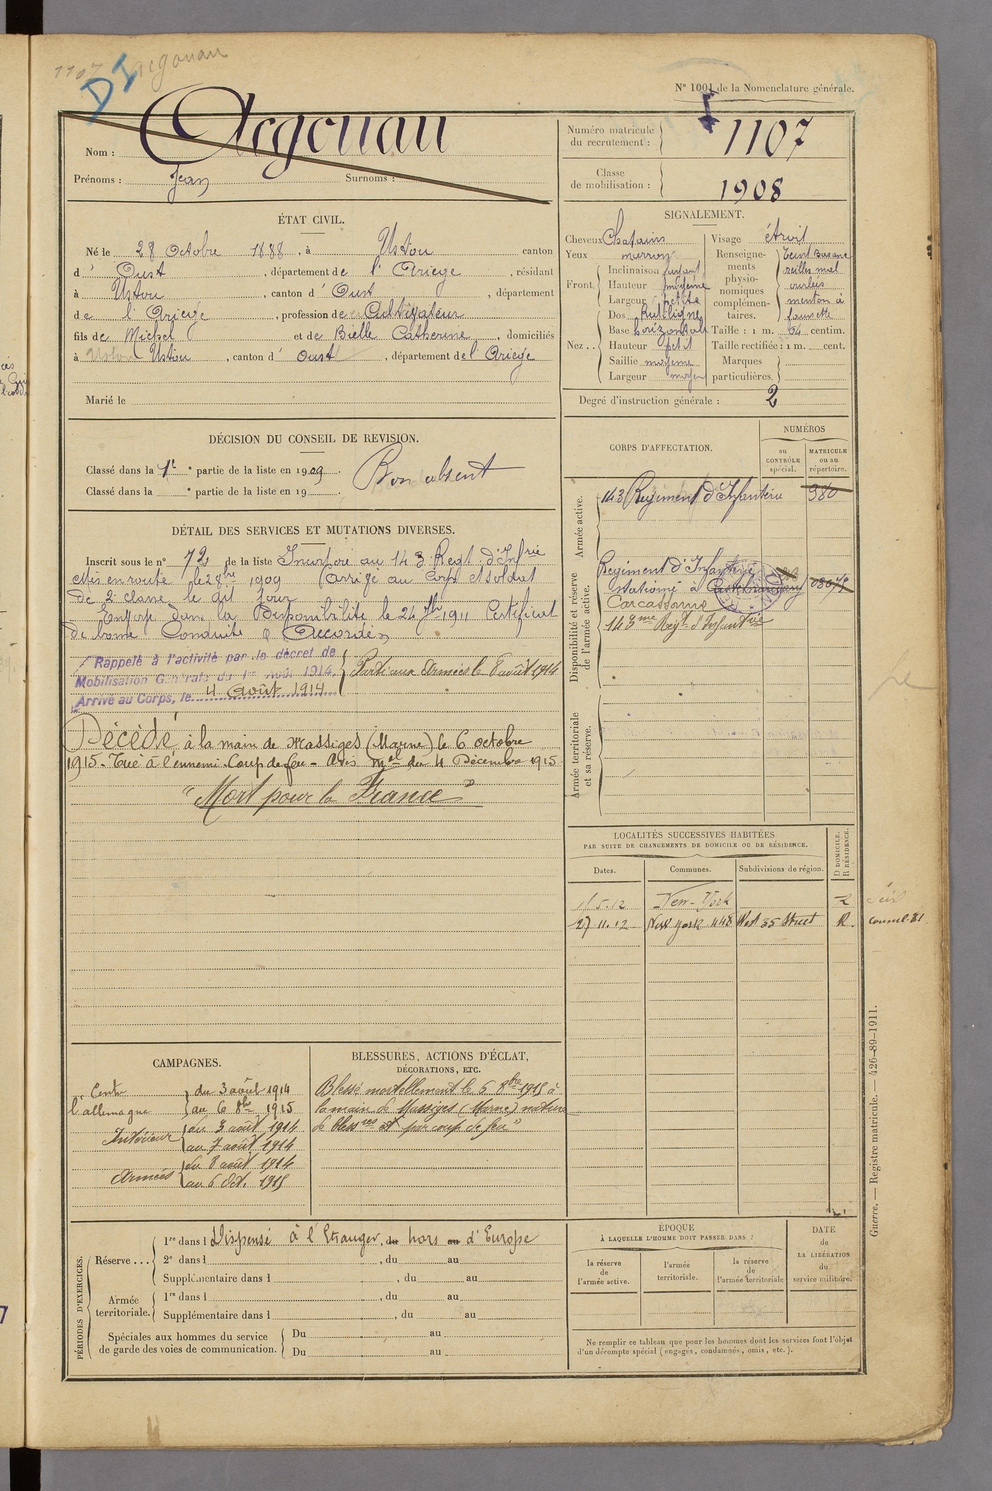 1107 Argouau
DI
N° 1001 de la Nomenclature générale.
Nom : Argouau
Prénoms : Jean Surnoms :
Numéro matricule du recrutement : 1107
Classe de mobilisation : 1908
ÉTAT CIVIL.
Né le 28 Octobre 1888, à Ustou canton
d' Oust, département de l'Ariège, résidant
à Ustou, canton d' Oust, département
de l'Ariège, profession de Cultivateur
fils de Michel et de Bielle Catherine, domiciliés
à Ustou, canton d' Oust, département de l'Ariège
Marié le
SIGNALEMENT.
Cheveux Chatains
Yeux marrons
Front Inclinaison fuyant
Hauteur moyenne
Largeur petite
Nez Dos Rectiligne
Base horizontal
Hauteur petit
Saillie moyenne
Largeur moyen
Visage étroit
Renseignements physionomiques complémentaires. Teint basané
oreilles mal
ourlées
menton à
fossette
Taille : 1 m. 64 centim.
Taille rectifiée : 1 m. cent.
Marques particulières.
Degré d'instruction générale : 2
DÉCISION DU CONSEIL DE REVISION.
Classé dans la 1e partie de la liste en 1909. Bon absent
Classé dans la partie de la liste en 19
DÉTAIL DES SERVICES ET MUTATIONS DIVERSES.
Inscrit sous le n° 72 de la liste Incorporé au 143 Regt d'Infrie
mis en route le 28bre 1909 Arrivé au Corps et soldat
de 2e classe le dit jour
Envoyé dans la Disponibilité le 24 7bre 1911 Certificat
de bonne Conduite Accordé
Rappelé à l'activité par le décret de
Mobilisation Générale du 1er Août 1914.
Arrivé au Corps, le 4 Août 1914
Parti aux Armées le 8 août 1914
Décédé à la main de Massiges (Marne) le 6 octobre
1915. Tué à l'ennemi. Coup de feu - Avis Mel du 4 Décembre 1915
"Mort pour la France"
CORPS D'AFFECTATION.
NUMÉROS
au CONTRÔLE spécial.
MATRICULE ou au répertoire.
Armée active.
143 Régiment d'Infanterie 980
Disponibilité et réserve de l'armée active.
Régiment d'Infanterie
stationné à Castelnaudary
Carcassonne
143me Régt d'Infanterie
Armée territoriale et sa réserve.
LOCALITÉS SUCCESSIVES HABITÉES
PAR SUITE DE CHANGEMENTS DE DOMICILE OU DE RÉSIDENCE.
Dates. Communes. Subdivisions de région. D DOMICILE. R RÉSIDENCE.
5.12 New-York
27 11.12 New york 448 West 35 Street R.
CAMPAGNES.
Contre l'allemagne du 3 août 1914
au 6 8bre 1915
Intérieur du 3 août 1914
au 7 août 1914
Armées du 8 août 1914
au 6 Oct. 1915
BLESSURES, ACTIONS D'ÉCLAT,
DÉCORATIONS, ETC.
Blessé mortellement le 6 8bre 1915 à
la main de Massiges (Marne) nature
de blessres "par coup de feu"
PÉRIODES D'EXERCICES.
Réserve ... 1re dans l Dispensé à l'Etranger, du hors au d'Europe
2e dans l , du au
Supplémentaire dans l , du au
Armée territoriale. 1re dans l , du au
Supplémentaire dans l , du au
Spéciales aux hommes du service
de garde des voies de communication.
Du au
Du au
ÉPOQUE
À LAQUELLE L'HOMME DOIT PASSER DANS :
la réserve de l'armée active.
l'armée territoriale.
la réserve de l'armée territoriale
DATE de LA LIBÉRATION du service militaire.
Ne remplir ce tableau que pour les hommes dont les services font l'objet
d'un décompte spécial (engagés, condamnés, omis, etc.).
Guerre. — Registre matricule. — 426-89-1911.